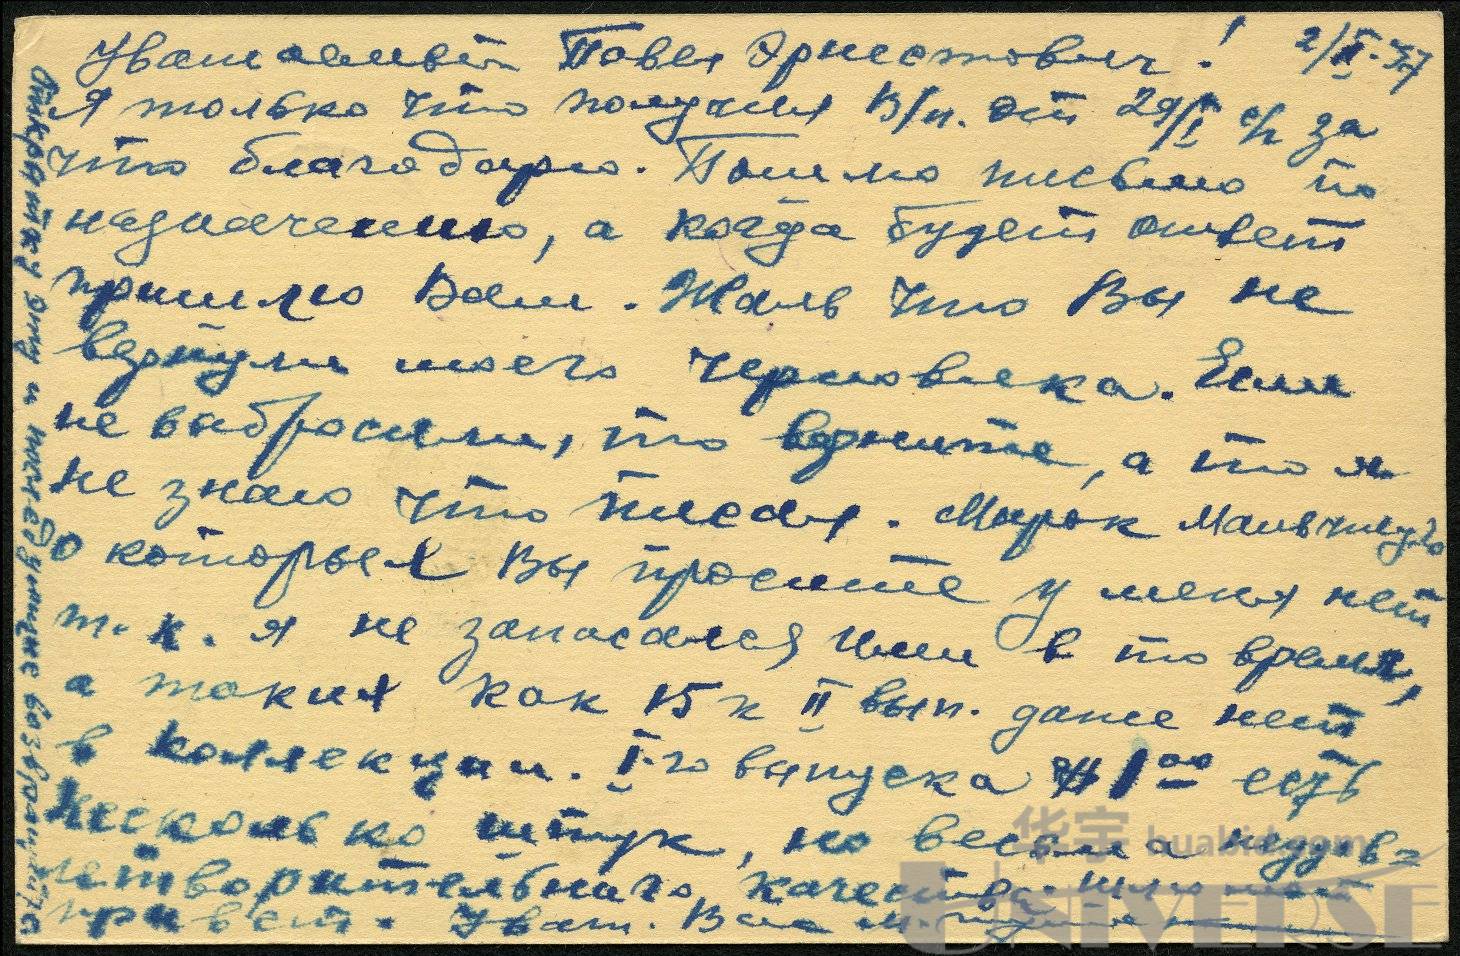 Уважаемый Павел Эрнестович! 2/II-37
Я только что получил В/п. от 29/I с/г за
что благодарю. Пошлю письмо по
назначению, а когда будет ответ
пришлю Вам. Жаль что Вы не
вернули моего черновика. Если
не выбросили, то верните, а то я
не знаю что писал. Марок Маньчжу-Го
о которых Вы просите у меня нет
т.к. я не запасался ими в то время,
а таких как 15к II вып. даже нет
в коллекции. I-го выпуска 1⁰⁰ есть
несколько штук, но весьма неудов=
летворительного качества. Шлю мой
привет. Уваж. Вас М.
Открытку эту и последующие возвращайте
华宇 huabid.com
UNIVERSE